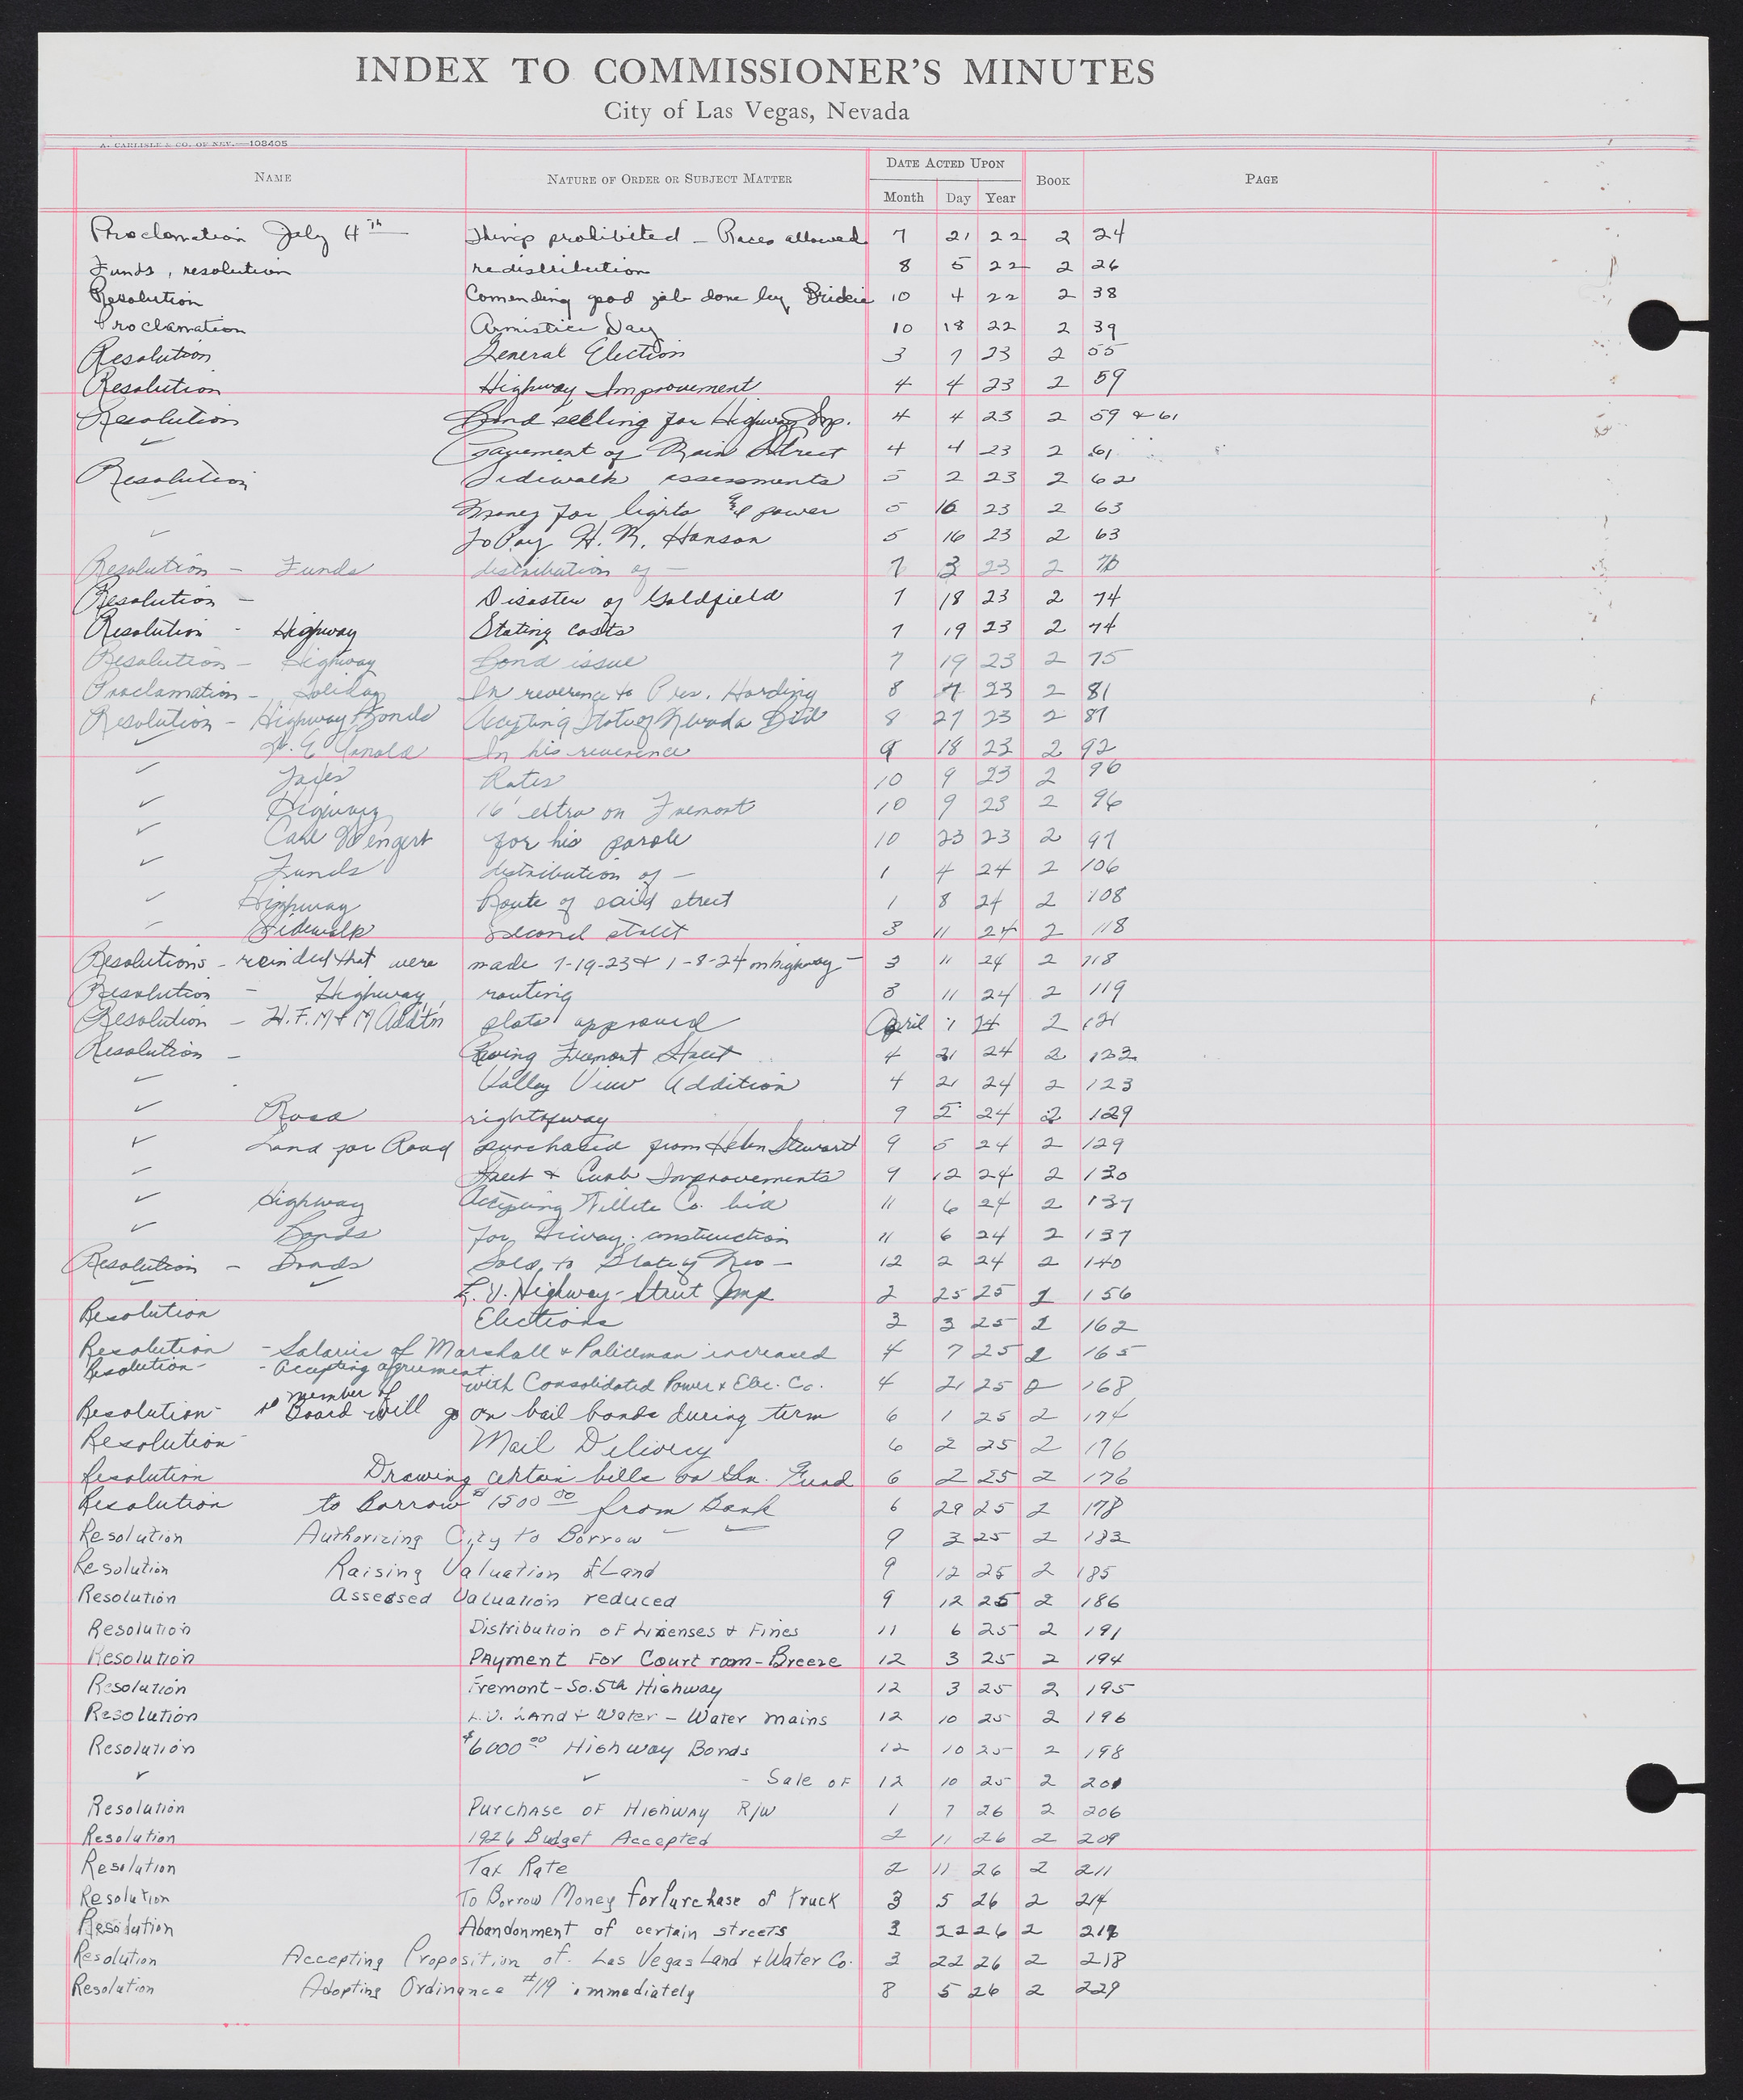 INDEX TO COMMISSIONER'S MINUTES
City of Las Vegas, Nevada
A. CARLISLE & CO. OF NEV.—108405
NAME NATURE OF ORDER OR SUBJECT MATTER DATE ACTED UPON Month Day Year BOOK PAGE
Proclamation July 4th prohibited - Races allowed 7 21 22 2 24
Funds, resolution redistribution 8 5 22 2 26
Resolution Comending good job done by 10 4 22 2 38
Proclamation Armistice Day 10 18 22 2 39
Resolution General Election 3 7 23 2 55
Resolution Highway Improvement 4 4 23 2 59
Resolution Bond selling for Highway Imp. 4 4 23 2 59 & 61
✓ Pavement of Main Street 4 4 23 2 61
Resolution Sidewalk assessments 5 2 23 2 62
Money for lights & power 5 16 23 2 63
✓ To Pay H. M. Hanson 5 16 23 2 63
Resolution - Funds distribution of - 7 3 23 2
Resolution - Disaster of Goldfield 7 18 23 2 74
Resolution - Highway Stating costs 7 19 23 2 74
Resolution - Highway Bond issue 7 19 23 2 75
Proclamation - Holiday In reverence to Pres. Harding 8 23 2 81
Resolution - Highway Bonds Accepting State of Nevada Bid 8 27 23 2 87
✓ In his reverence 9 18 23 2 92
✓ Taxes Rates 10 9 23 2 96
✓ Highway 16' extra on Fremont 10 9 23 2 96
✓ Carl Wengert for his parole 10 23 23 2 97
✓ Funds distribution of - 1 4 24 2 106
✓ Highway Route of said street 1 8 24 2 108
✓ Sidewalk Second street 3 11 24 2 118
Resolutions - recinded that were made 7-19-23 & 1-8-24 on highway - 3 11 24 2 118
Resolution - Highway, routing 3 11 24 2 119
Resolution - H.F.M & M Addtn plats approved April 7 24 2 121
Resolution - Paving Fremont Street 4 21 24 2 122
✓ Valley View Addition 4 21 24 2 123
✓ Road right of way 9 5 24 2 129
✓ Land for Road purchased from Helen Stewart 9 5 24 2 129
✓ Street & Curb Improvements 9 12 24 2 130
✓ Highway Accepting Willite Co. bid 11 6 24 2 137
✓ Bonds for Hiway. construction 11 6 24 2 137
Resolution - Bonds Sold to State of Nev - 12 2 24 2 140
✓ ✓ L.V. Highway - Street Imp 2 25 25 2 156
Resolution Elections 3 3 25 2 162
Resolution - Salaries of Marshall & Policeman increased 4 7 25 2 165
Resolution - - Accepting agreement with Consolidated Power & Elec. Co. 4 21 25 2 168
Resolution - no member of Board will go on bail bonds during term 6 1 25 2 174
Resolution - Mail Delivery 6 2 25 2 176
Resolution Drawing certain bills on Gen. Fund 6 2 25 2 176
Resolution to Borrow $1500 00 from Bank 6 29 25 2 178
Resolution Authorizing City to Borrow ✓ ✓ 9 3 25 2 183
Resolution Raising Valuation of Land 9 12 25 2 185
Resolution Assessed Valuation reduced 9 12 25 2 186
Resolution Distribution of Lisenses & Fines 11 6 25 2 191
Resolution Payment For Court room - Breeze 12 3 25 2 194
Resolution Fremont - So. 5th Highway 12 3 25 2 195
Resolution L.V. Land & Water - Water mains 12 10 25 2 196
Resolution $6000 00 Highway Bonds 12 10 25 2 198
✓ ✓ - Sale of 12 10 25 2 201
Resolution Purchase of Highway R/W 1 7 26 2 206
Resolution 1926 Budget Accepted 2 11 26 2 209
Resolution Tax Rate 2 11 26 2 211
Resolution To Borrow Money for Purchase of Truck 3 5 26 2 214
Resolution Abandonment of certain streets 3 22 26 2
Resolution Accepting Proposition of Las Vegas Land & Water Co. 3 22 26 2 218
Resolution Adopting Ordinance #119 immediately 8 5 26 2 229